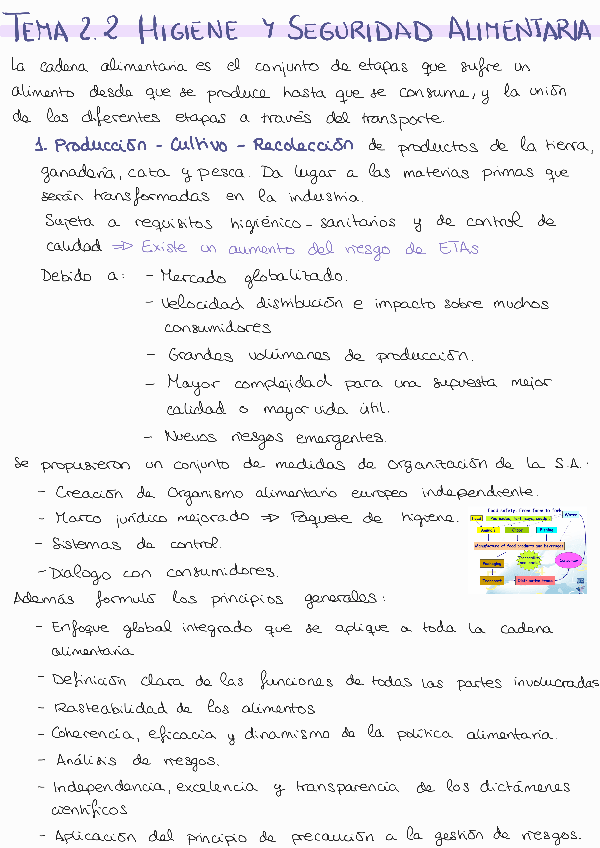 TEMA 2.2 HIGIENE Y SEGURIDAD ALIMENTARIA
La cadena alimentaria es el conjunto de etapas que sufre un
alimento desde que se produce hasta que se consume, y la unión
de las diferentes etapas a través del transporte.
1. Producción - Cultivo - Recolección de productos de la tierra,
ganadería, caza y pesca. Da lugar a las materias primas que
serán transformadas en la industria.
Sujeta a requisitos higiénico-sanitarios y de control de
calidad => Existe un aumento del riesgo de ETAs
Debido a: - Mercado globalizado.
- Velocidad distribución e impacto sobre muchos
consumidores
- Grandes volúmenes de producción.
- Mayor complejidad para una supuesta mejor
calidad o mayor vida útil.
- Nuevos riesgos emergentes.
Se propusieron un conjunto de medidas de organización de la S.A.:
- Creación de Organismo alimentario europeo independiente.
- Marco jurídico mejorado => Paquete de higiene.
- Sistemas de control.
- Dialogo con consumidores.
Food safety: from farm to fork
Feed
Water
Animals
Plants
Manufacture of food products and beverages
Packaging
Consumer
Transport
Además formuló los principios generales:
- Enfoque global integrado que se aplique a toda la cadena
alimentaria
- Definición clara de las funciones de todas las partes involucradas
- Rasteabilidad de los alimentos
- Coherencia, eficacia y dinamismo de la política alimentaria.
- Análisis de riesgos.
- Independencia, excelencia y transparencia de los dictámenes
científicos
- Aplicación del principio de precaución a la gestión de riesgos.